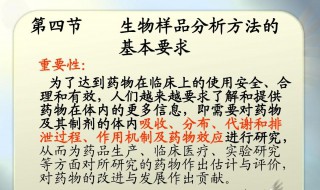 第四节 生物样品分析方法的
基本要求
重要性:
为了达到药物在临床上的使用安全、合
理和有效，人们越来越要求了解和提供
药物在体内的更多信息，即需要对药物
及其制剂的体内吸收、分布、代谢和排
泄过程、作用机制及药物效应进行研究，
从而为药品生产、临床医疗、实验研究
等方面对所研究的药物作出估计与评价，
对药物的改进与发展作出贡献。